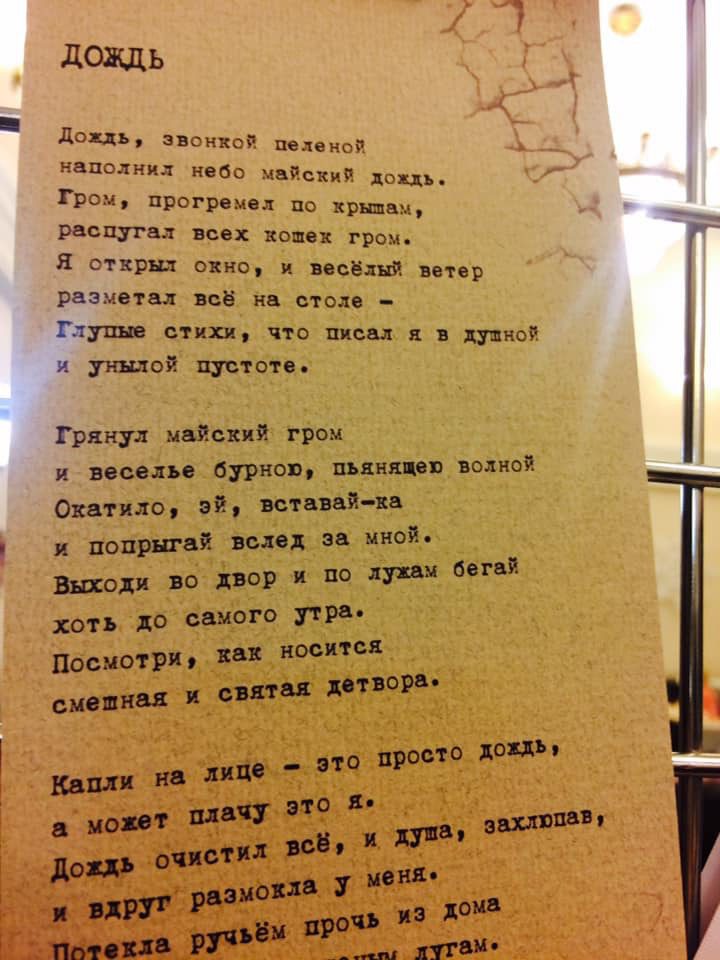 ДОЖДЬ
Дождь, звонкой пеленой
наполнил небо майский дождь.
Гром, прогремел по крышам,
распугал всех кошек гром.
Я открыл окно, и весёлый ветер
разметал всё на столе –
Глупые стихи, что писал я в душной
и унылой пустоте.
Грянул майский гром
и веселье бурною, пьянящею волной
Окатило, эй, вставай-ка
и попрыгай вслед за мной.
Выходи во двор и по лужам бегай
хоть до самого утра.
Посмотри, как носится
смешная и святая детвора.
Капли на лице – это просто дождь,
а может плачу это я.
Дождь очистил всё, и душа, захлюпав,
и вдруг размокла у меня.
Потекла ручьём прочь из дома
лугам.